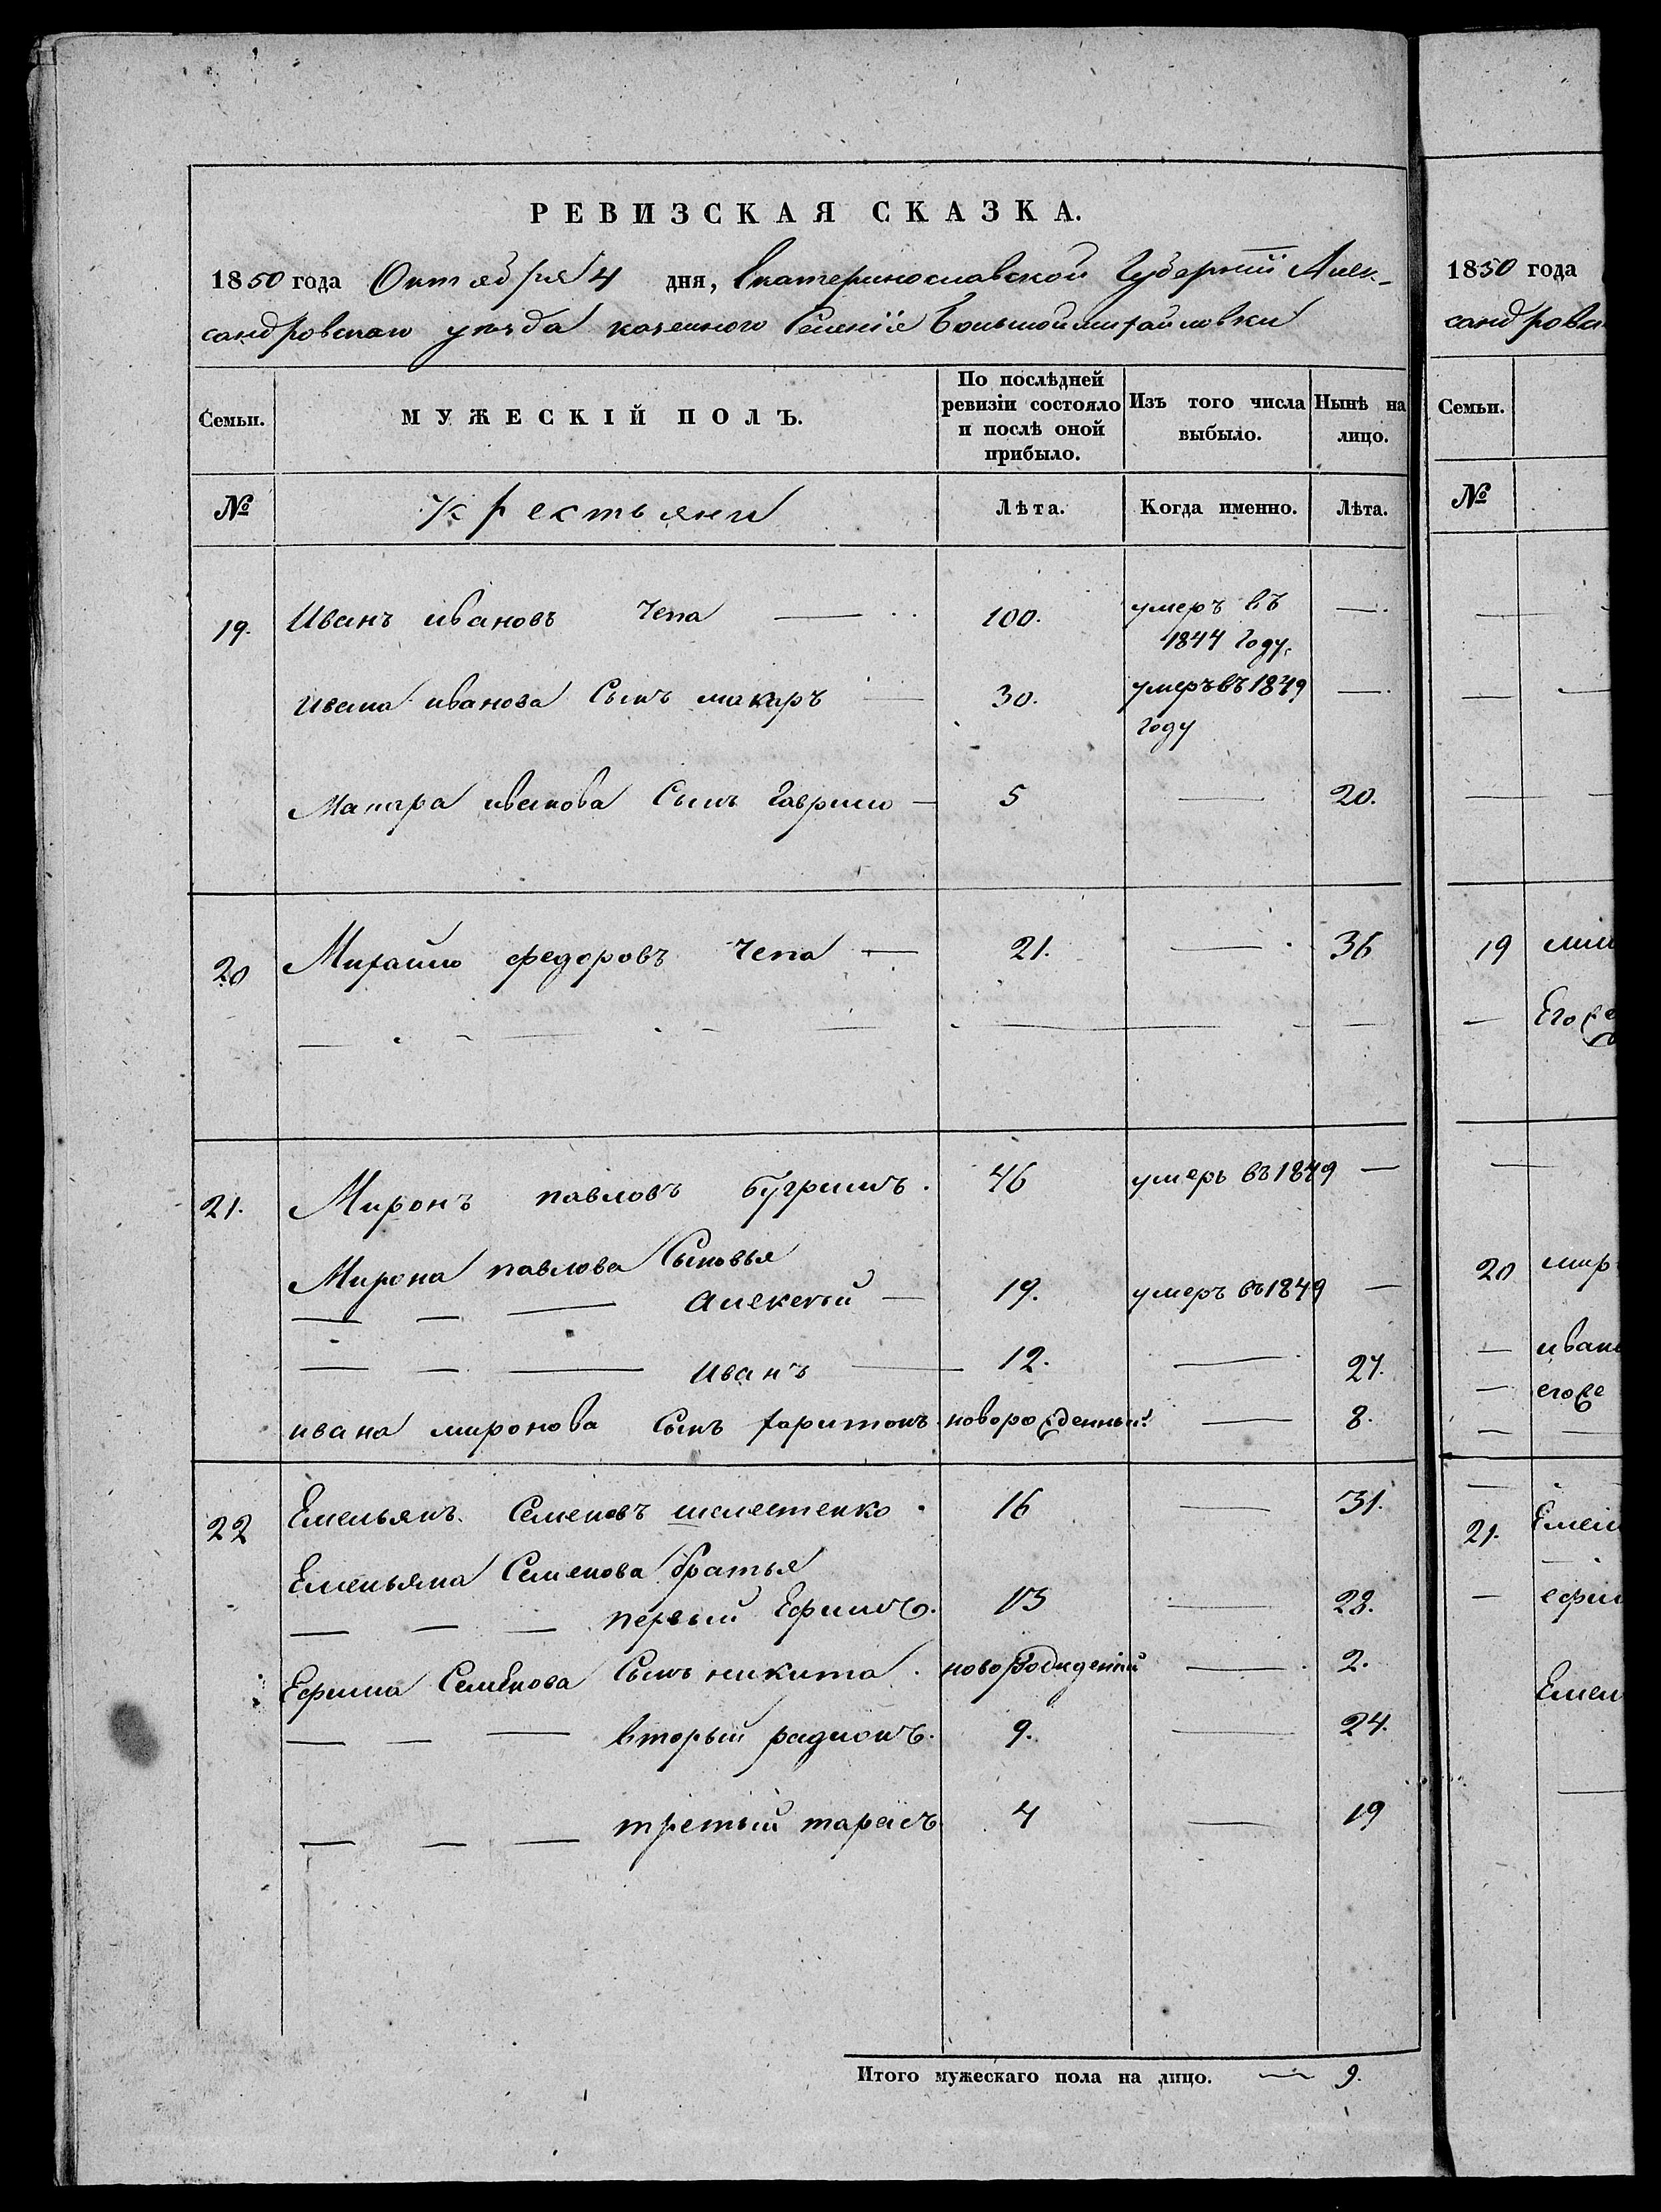 РЕВИЗСКАЯ СКАЗКА.
1850 года Октября 4 дня, Екатеринославской Губерніи Алек-
сандровскаго уѣзда казенного Селенія Большоймихайловки
Семьи.
МУЖЕСКІЙ ПОЛЪ.
По послѣдней ревизіи состояло и послѣ оной прибыло.
Изъ того числа выбыло.
Нынѣ на лицо.
№ крестьяни Лѣта. Когда именно. Лѣта.
19. Иванъ ивановъ Чепа — 100. умеръ въ 1844 году. —
Ивана иванова Сынъ макаръ — 30. умеръ въ 1849 году —
Макара иванова Сынъ Гаврило — 5 — 20.
20 Михайло федоровъ Чепа — 21. — 36
21. Миронъ павловъ бугримъ. 46 умеръ въ 1849 —
Мирона павлова Сыновья
— — — Алексей — 19. умеръ въ 1849 —
— — — иванъ — 12. — 27.
ивана миронова Сынъ харитонъ. новорожденный — 8.
22 Емельянъ Семеновъ шелестенко. 16 — 31.
Емельяна Семенова братья
— — — первый Ефимъ. 13 — 28.
Ефима Семенова Сынъ никита. новорожденный — 2.
— — — вторый радионъ. 9. — 24.
— — — третий тарасъ 4 — 19
Итого мужескаго пола на лицо. — 9.
1850 года
Семьи.
№
19
Его
20
21.